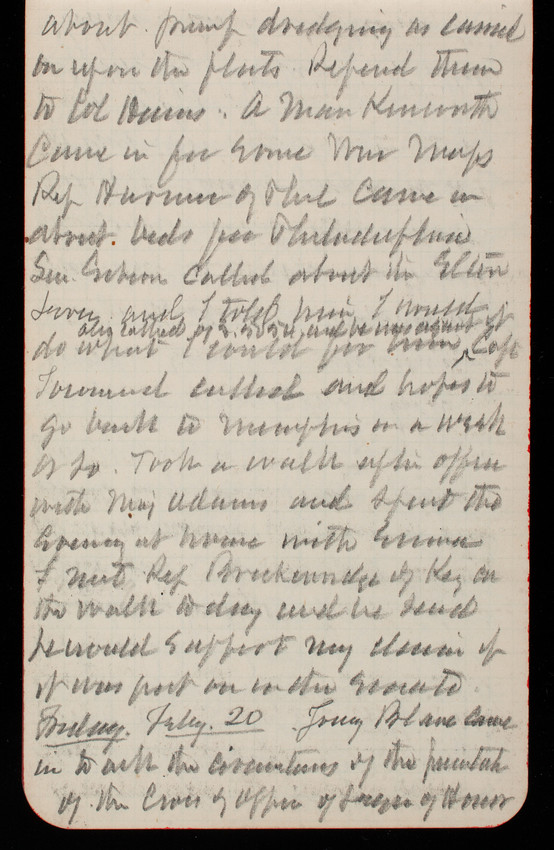 about pump dredging as carried
on upon the flats. Refered them
to Col Hains. A Man Kenworth
Came in for some War Maps
Rep Harmer of Phil Came in
about beds for Philadelphia
Sen. Gibson called about the Elten
and I told him I would
also called
do what I could for him, Capt
Townsend called and hopes to
go back to Memphis in a week
or so. Took a walk after office
with Maj Adams and spent the
Evening at home with Emma
I met Rep Breckenridge of Ky on
the walk to day and he said
he would support my claim if
it was put on in the Senate
Friday. Feby. 20 Blane came
in to ask the of the
of the Cross of Officer of Legion of Honor